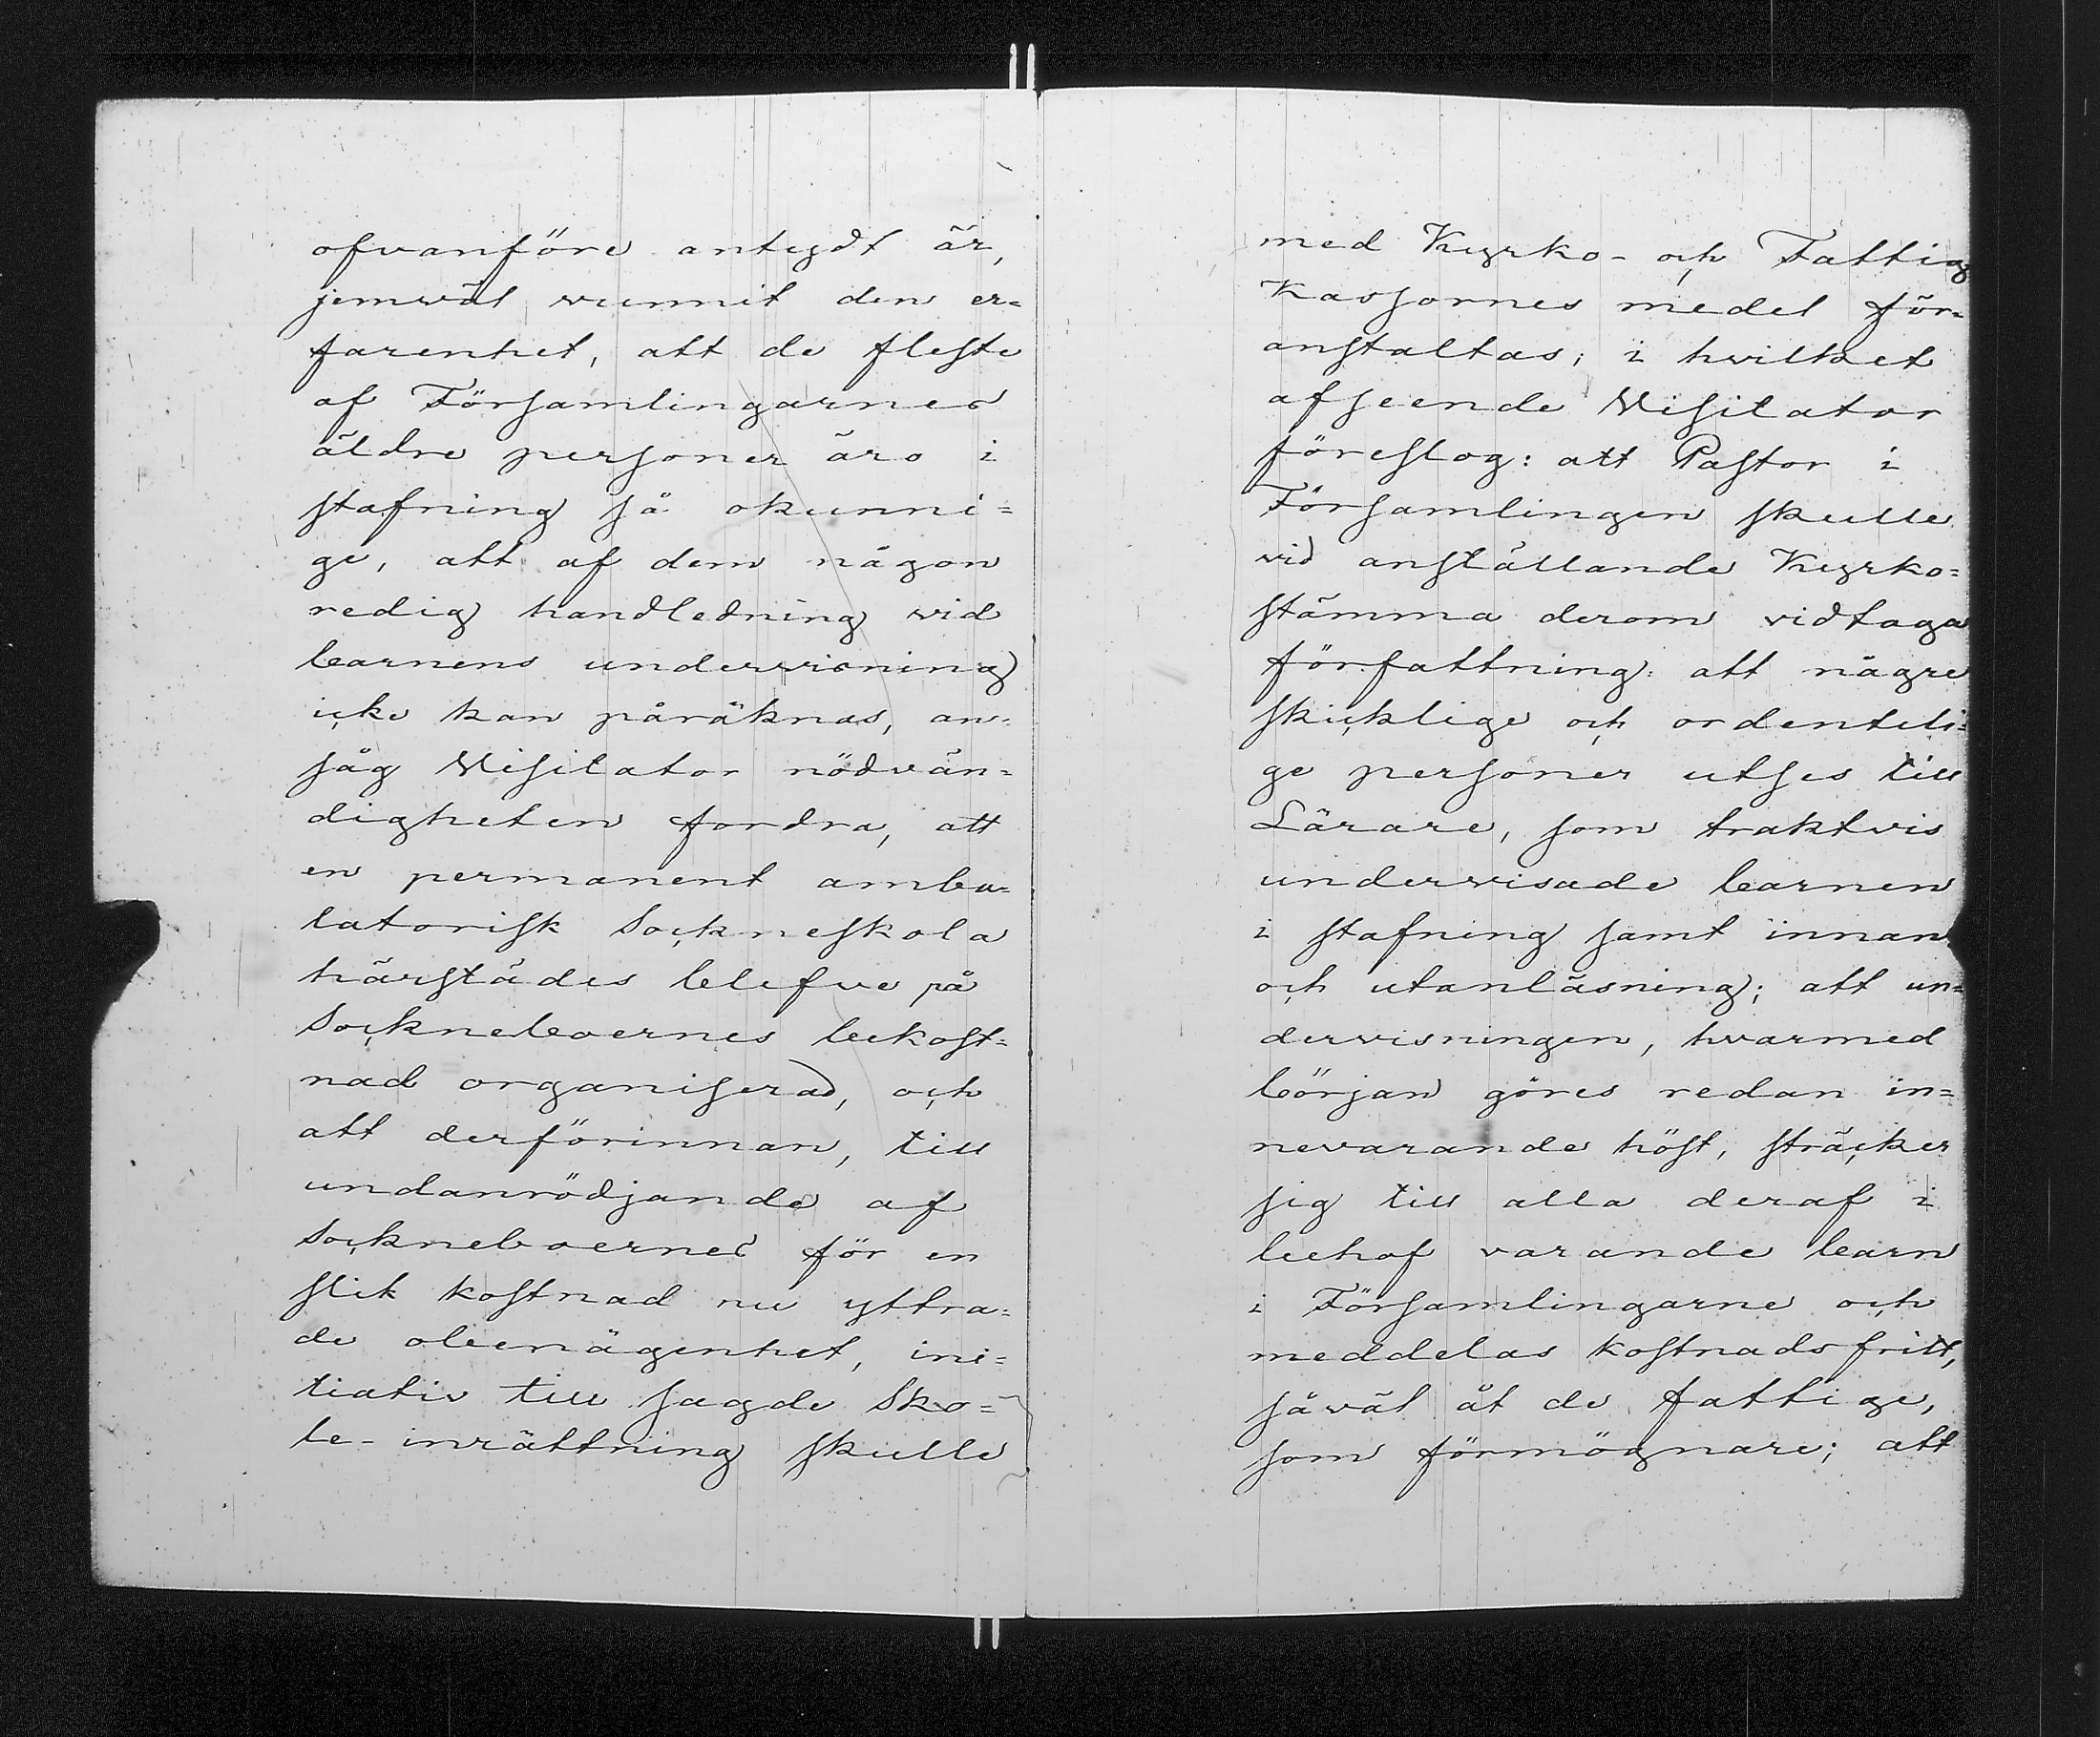 ofvanföre antydt är,
jemwäl wunnit den er=
farenhet, att de fleste
af Församlingarnes
äldre personer äro i
stafning så okunni=
ge, att af dem någon
redig handledning wid
barnens underwisning
icke kan påräknas, an=
såg Visitator nödvän=
digheten fordra, att
en permanent ambu=
latorisk Sockneskola
härstädes blefve på
Sockneboernes bekost=
nad organiserad, och
att derförinnan, till
undanrödjande af
Sockneboernes för en
slik kostnad nu yttra=
de obenägenhet, ini=
tiativ till sagde Sko=
le-inrättning skulle
med Kyrko- och Fattig
Kassornes medel för=
anstaltas; i hvilket
afseende Visitator
föreslog: att Pastor i
Församlingen skulle
vid anställande Kyrko=
stämma derom vidtaga
författning: att någre
skicklige och ordentli=
ge personer utses till
Lärare, som traktvis
undervisade barnen
i stafning samt innan
och utanläsning; att un=
dervisningen, hvarmed
början göres redan in=
nevarande höst, sträcker
sig till alla deraf i
behof varande barn
i Församlingarne och
meddelas kostnadsfritt,
såväl åt de fattige,
som förmögnare; att